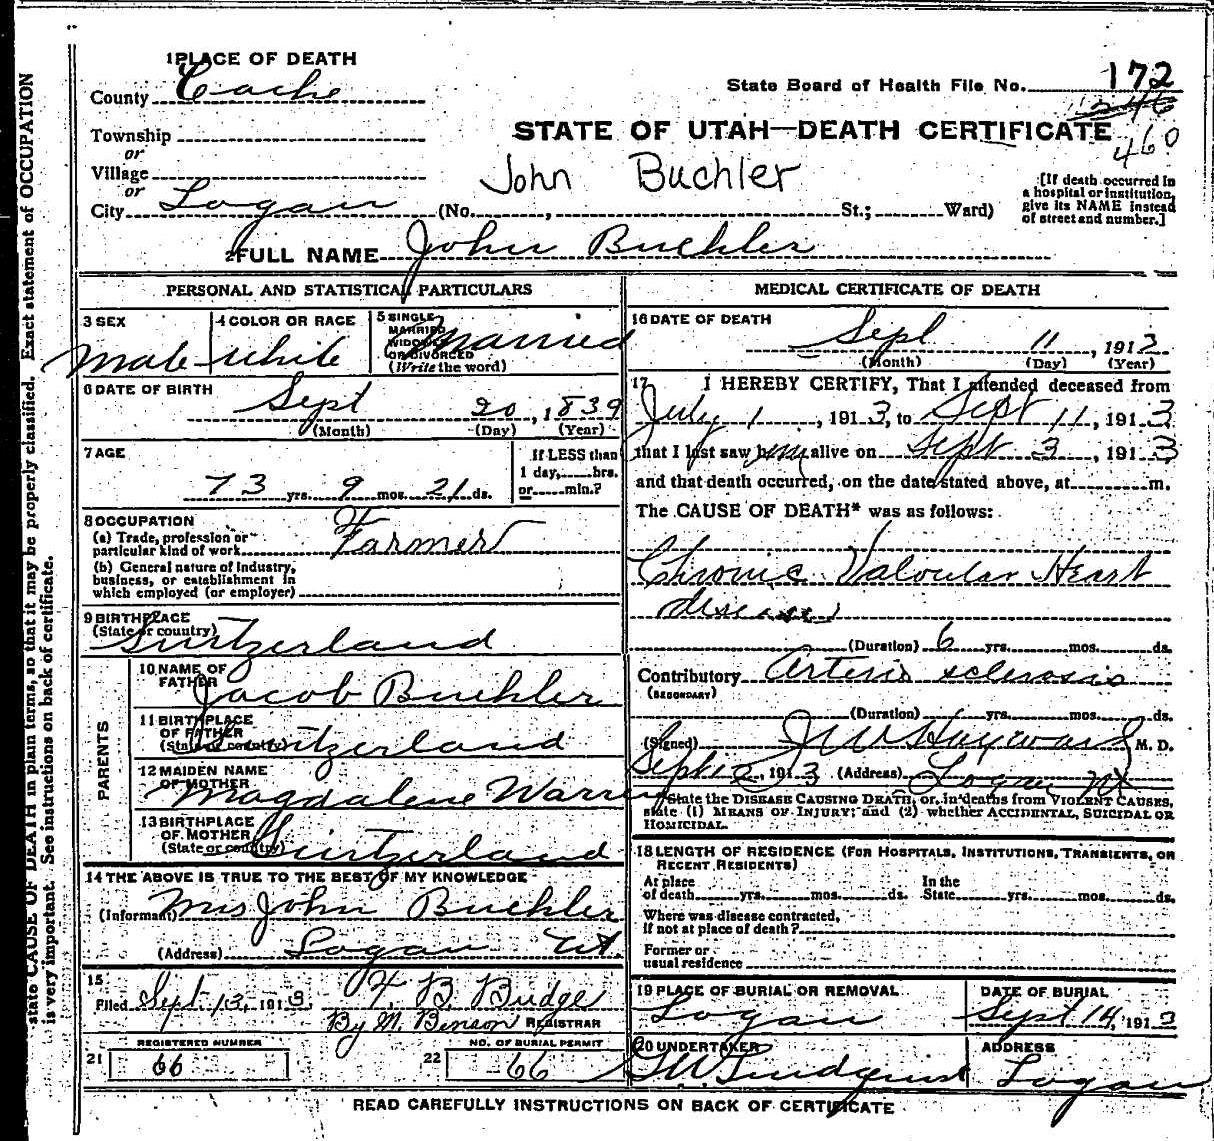 1 PLACE OF DEATH
County Cache
State Board of Health File No. 172
246
460
Township
or
Village
or
City Logan (No. , St.; Ward)
STATE OF UTAH—DEATH CERTIFICATE
John Buehler
[If death occurred in
a hospital or institution,
give its NAME instead
of street and number.]
2 FULL NAME John Buehler
PERSONAL AND STATISTICAL PARTICULARS
3 SEX
Male
4 COLOR OR RACE
White
5 SINGLE
MARRIED
WIDOWED
OR DIVORCED
(Write the word)
Married
6 DATE OF BIRTH
Sept 20, 1839
(Month) (Day) (Year)
7 AGE
73 yrs. 9 mos. 21 ds.
If LESS than
1 day, hrs.
or min.?
8 OCCUPATION
(a) Trade, profession or
particular kind of work Farmer
(b) General nature of Industry,
business, or establishment in
which employed (or employer)
9 BIRTHPLACE
(State or country)
Switzerland
PARENTS
10 NAME OF
FATHER
Jacob Buehler
11 BIRTHPLACE
OF FATHER
(State or country)
Switzerland
12 MAIDEN NAME
OF MOTHER
Magdalene
13 BIRTHPLACE
OF MOTHER
(State or country)
Switzerland
14 THE ABOVE IS TRUE TO THE BEST OF MY KNOWLEDGE
(Informant) Mrs John Buehler
(Address) Logan Ut.
15
Filed Sept. 13, 1913. F. B. Budge
By M. Benson REGISTRAR
REGISTERED NUMBER
21 66
NO. OF BURIAL PERMIT
22 66
MEDICAL CERTIFICATE OF DEATH
16 DATE OF DEATH
Sept 11, 1913
(Month) (Day) (Year)
17 I HEREBY CERTIFY, That I attended deceased from
July 1, 1913, to Sept 11, 1913
that I last saw him alive on Sept 3, 1913
and that death occurred, on the date stated above, at m.
The CAUSE OF DEATH* was as follows:
Chronic Valvular Heart
disease
(Duration) 6 yrs. mos. ds.
Contributory Arterio sclerosis
(SECONDARY)
(Duration) yrs. mos. ds.
(Signed) J W Hayward M. D.
Sept 12, 1913 (Address) Logan Ut
*State the DISEASE CAUSING DEATH, or, in deaths from VIOLENT CAUSES,
state (1) MEANS OF INJURY; and (2) whether ACCIDENTAL, SUICIDAL OR
HOMICIDAL.
18 LENGTH OF RESIDENCE (FOR HOSPITALS, INSTITUTIONS, TRANSIENTS, OR
RECENT RESIDENTS)
At place
of death yrs. mos. ds.
In the
State yrs. mos. ds.
Where was disease contracted,
if not at place of death?
Former or
usual residence
19 PLACE OF BURIAL OR REMOVAL
Logan
DATE OF BURIAL
Sept 14, 1913
20 UNDERTAKER
G W Lindquist
ADDRESS
Logan
READ CAREFULLY INSTRUCTIONS ON BACK OF CERTIFICATE
state CAUSE OF DEATH in plain terms, so that it may be properly classified. Exact statement of OCCUPATION
is very important. See instructions on back of certificate.